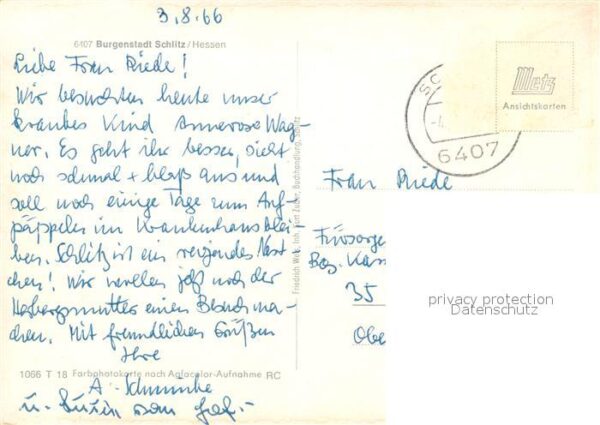 3.8.66
6407 Burgenstadt Schlitz/Hessen
Liebe Frau Riede!
Wir besuchten heute unser
krankes Kind Annerose Wag-
ner. Es geht ihr besser, sieht
noch schmal + blaß aus und
soll noch einige Tage zum Auf-
päppeln im Krankenhaus blei-
ben. Schlitz ist ein reizendes Nest-
chen! Wir wollen jetzt noch der
Herbergsmutter einen Besuch ma-
chen. Mit freundlichen Grüßen
Ihre
1066 T 18 Farbphotokarte nach Agfacolor-Aufnahme RC
A.
u.
Metz
Ansichtskarten
6407
Frau Riede
Fürsorge
Bez. Kass
35
Obe
privacy protection
Datenschutz